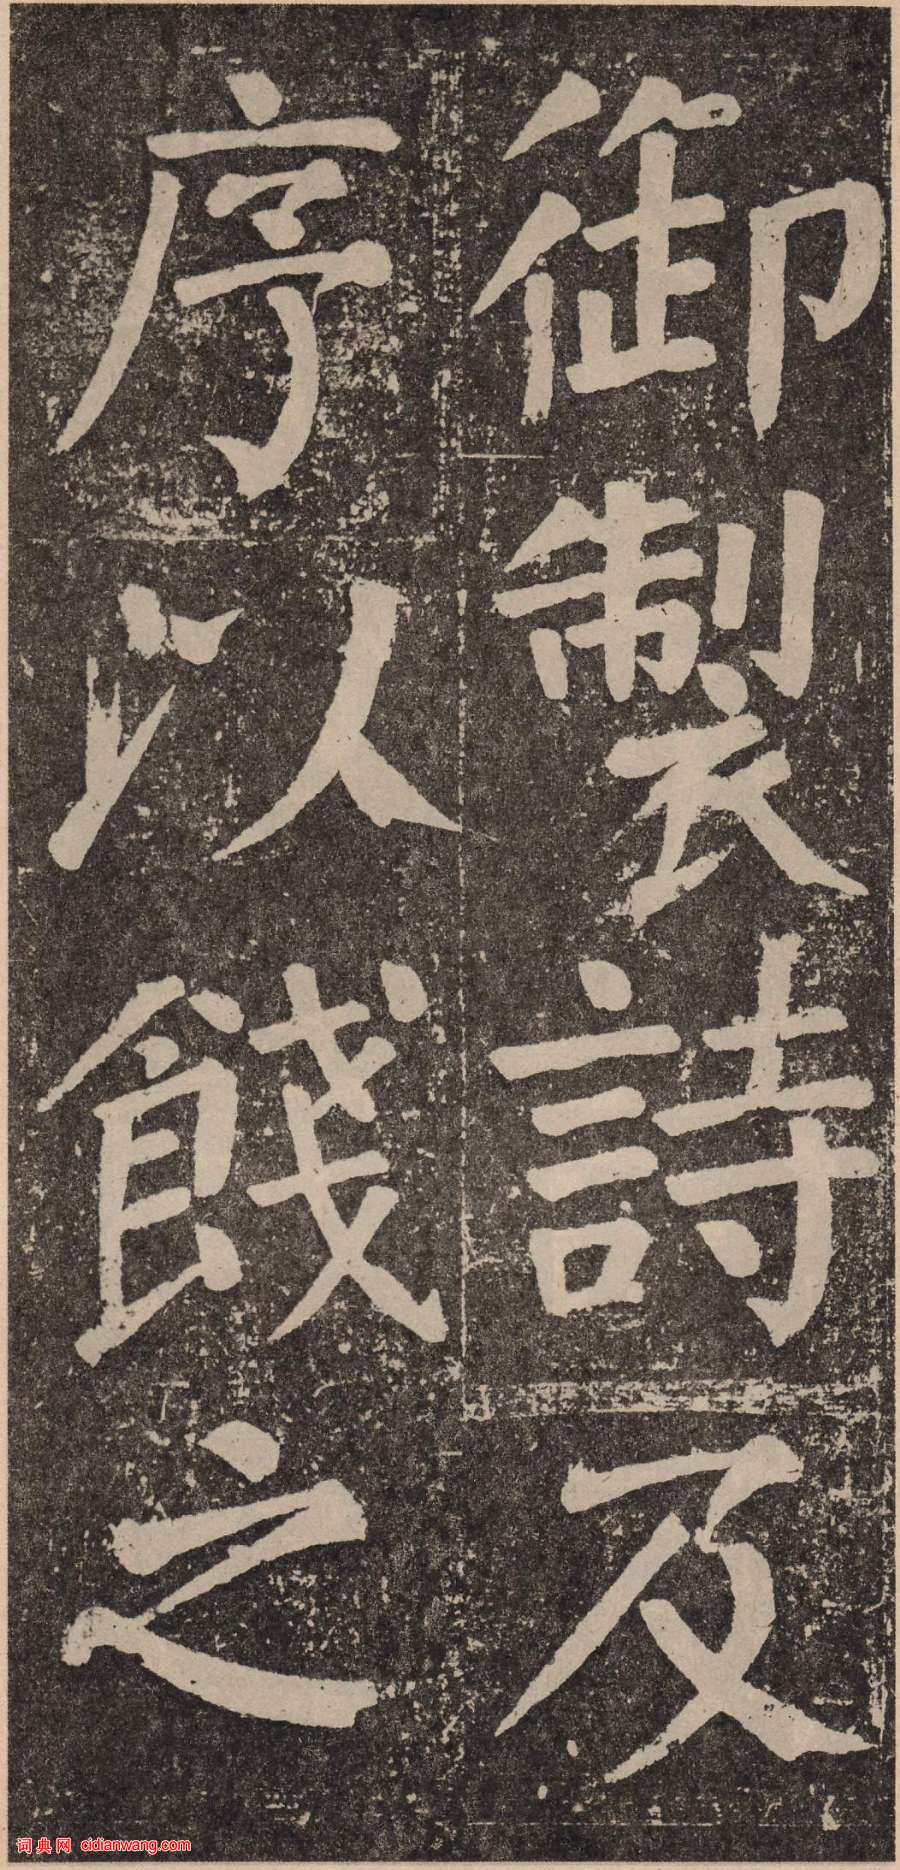 御製詩及
序以餞之
词典网 cidianwang.com